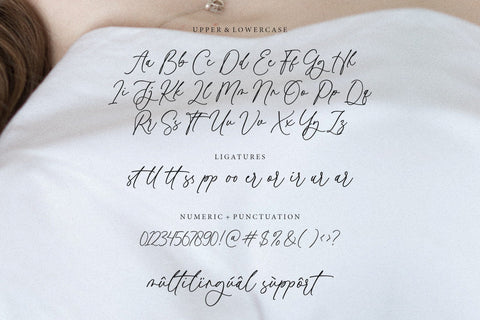 UPPER & LOWERCASE
Aa Bb Cc Dd Ee Ff Gg Hh
Ii Jj Kk Ll Mm Nn Oo Pp Qq
Rr Ss Tt Uu Vv Xx Yy Zz
LIGATURES
st ll tt ss pp oo er or ir ur ar
NUMERIC + PUNCTUATION
01234567890!@#$%&()<>?
mûltilïngúâl sùppôrt